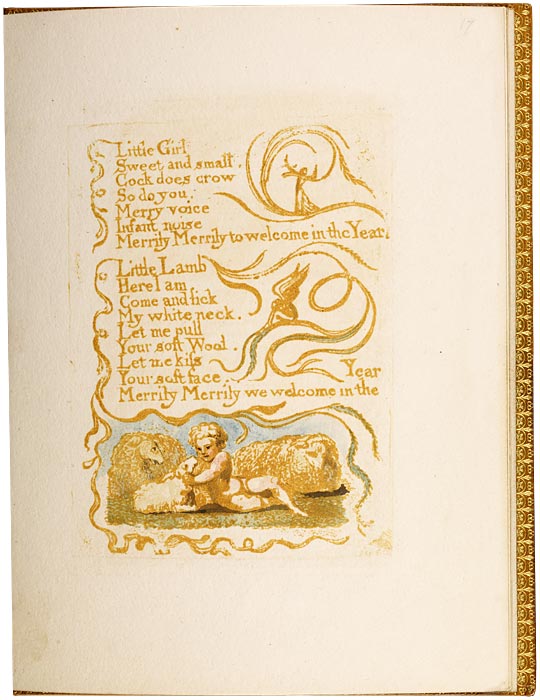 17
Little Girl
Sweet and small
Cock does crow
So do you.
Merry voice
Infant noise
Merrily Merrily to welcome in the Year
Little Lamb
Here I am
Come and lick
My white neck.
Let me pull
Your soft Wool.
Let me kiss
Your soft face.
Merrily Merrily we welcome in the
Year